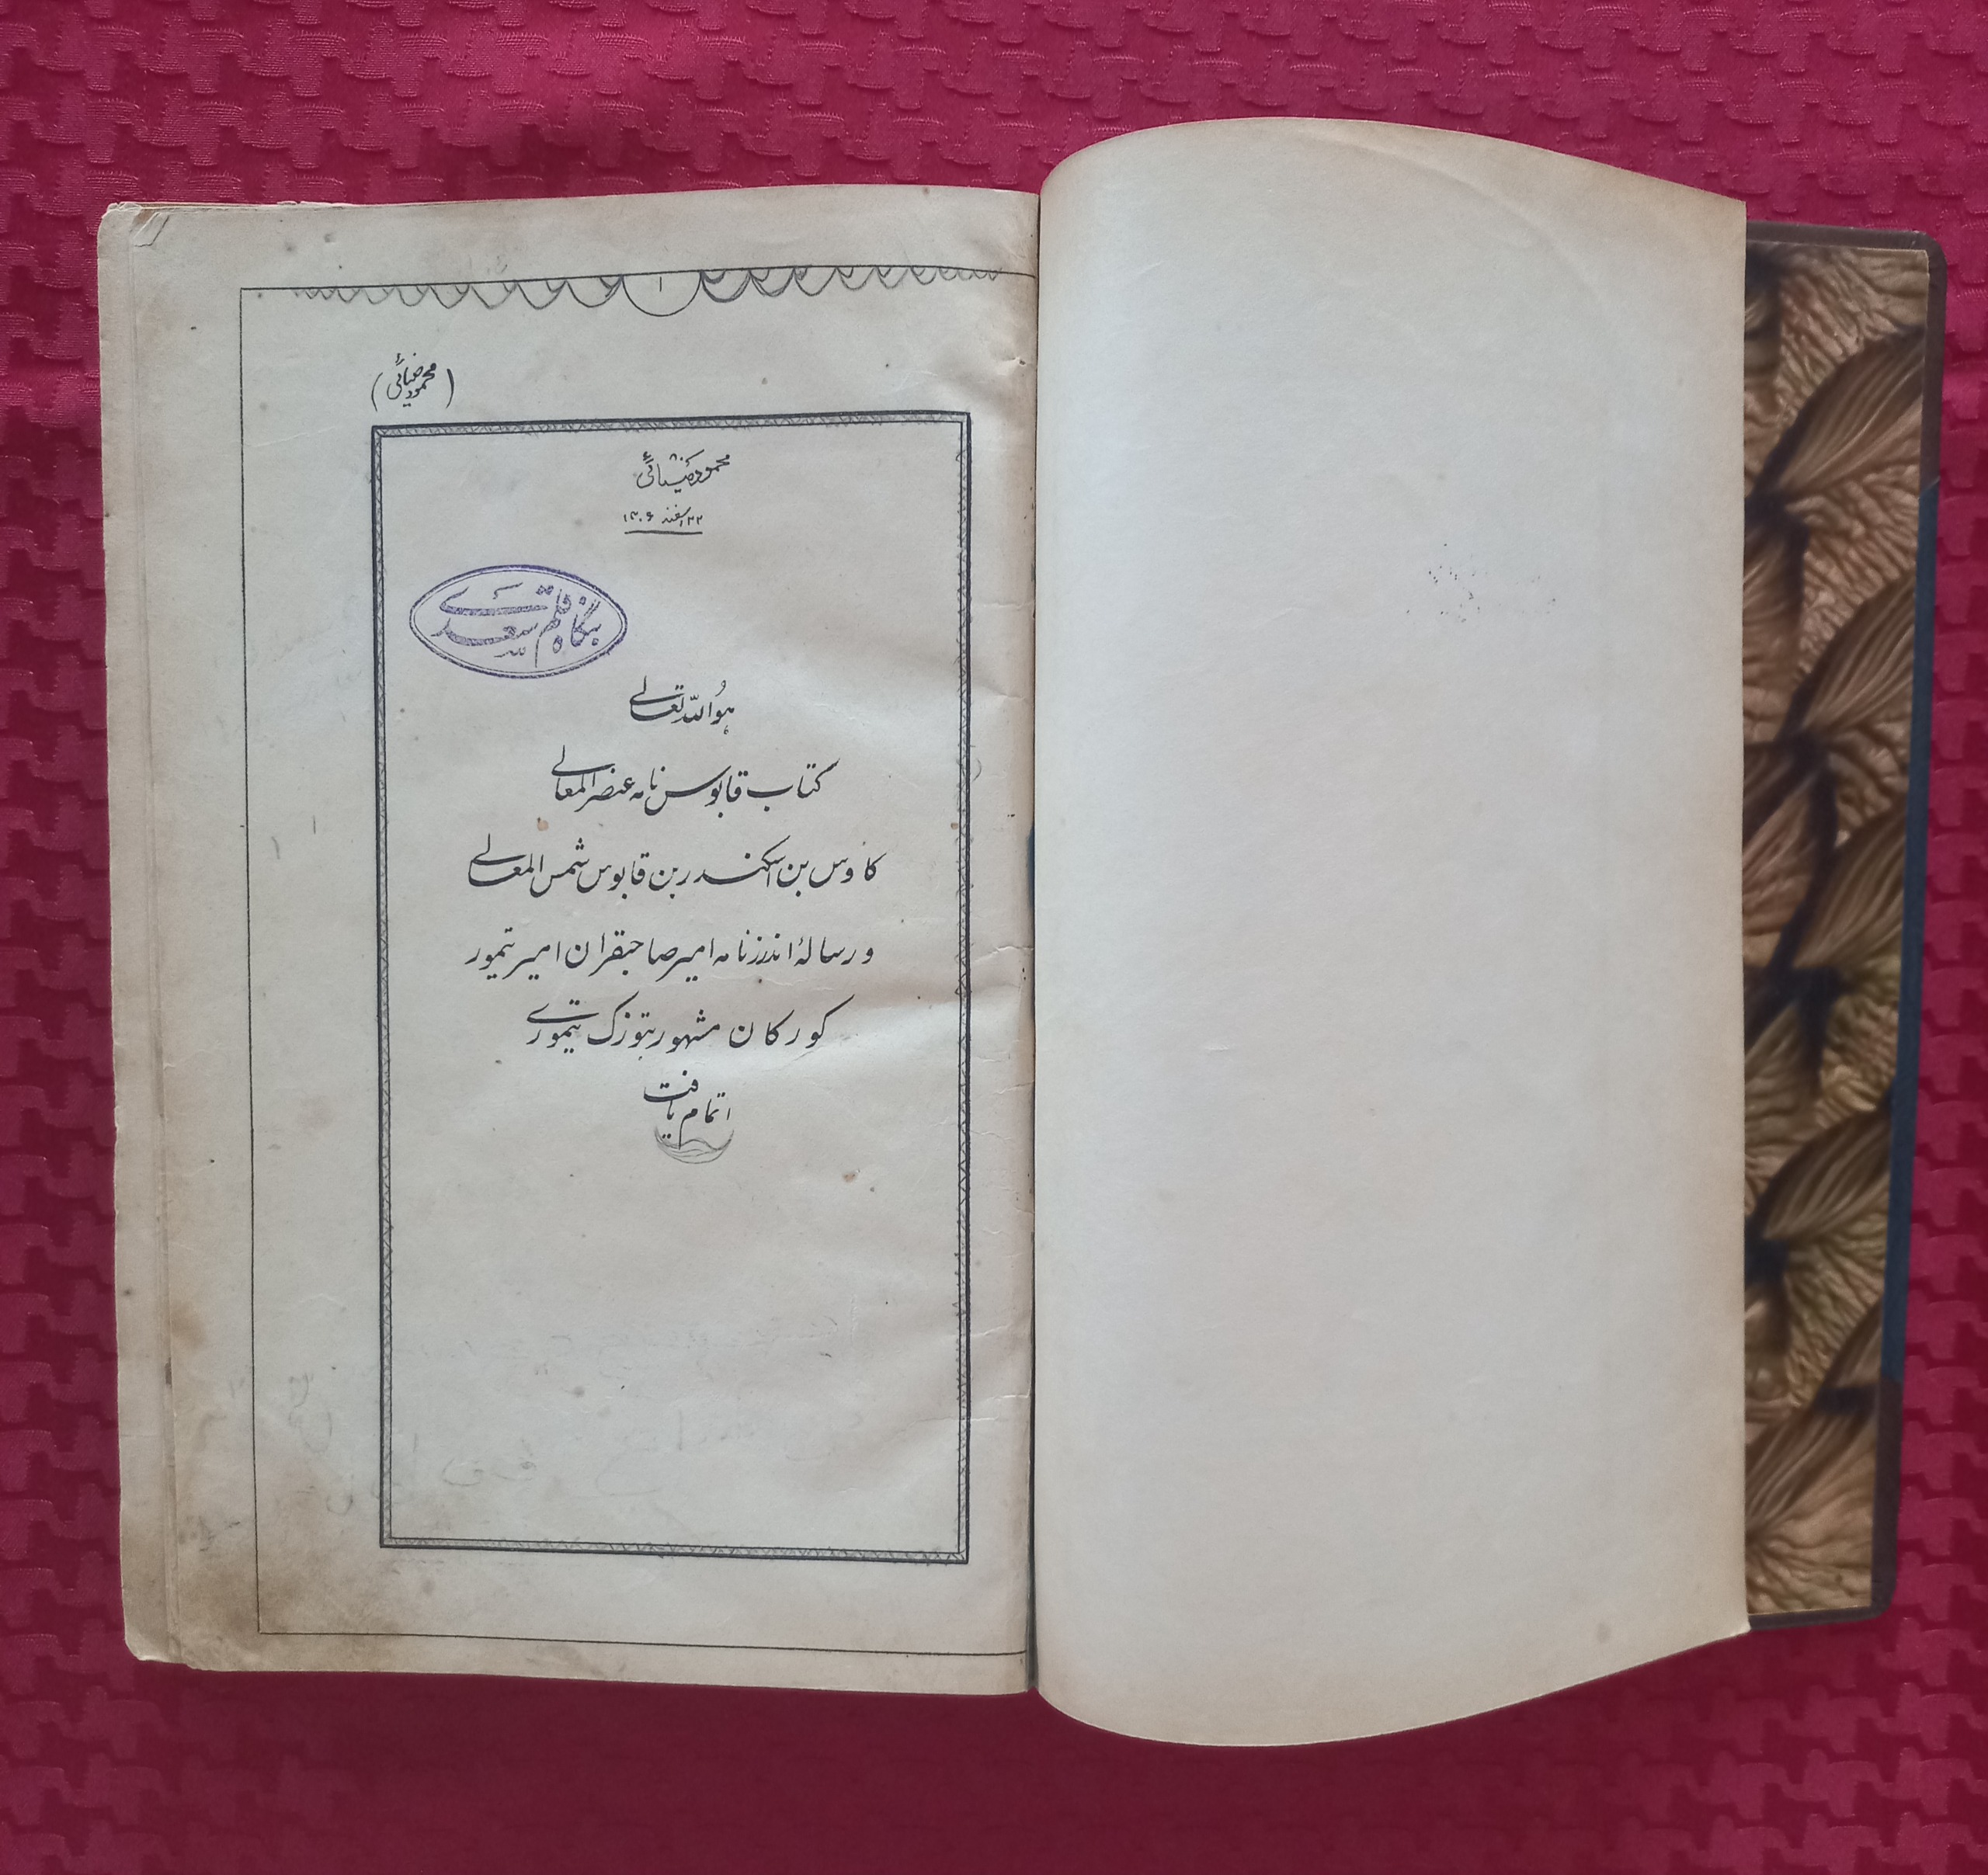 ۱
(محمود ضیائی)
محمود ضیائی
۲۲ اسفند ۱۳۰۶
بنگاه قلم سعدی
هو الله تعالی
کتاب قابوس نامه عنصر المعالی
کاوس بن اسکندر بن قابوس شمس المعالی
و رسالهٔ اندرزنامه امیر صاحبقران امیر تیمور
کورکان مشهور بتوزک تیموری
اتمام یافت